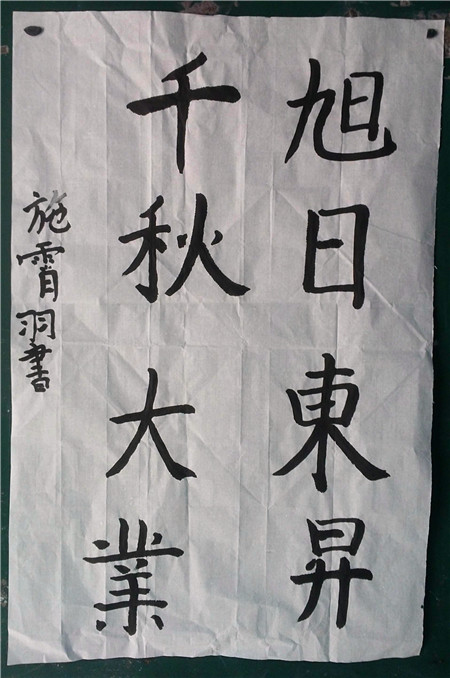 旭日東昇
千秋大業
施霄羽書